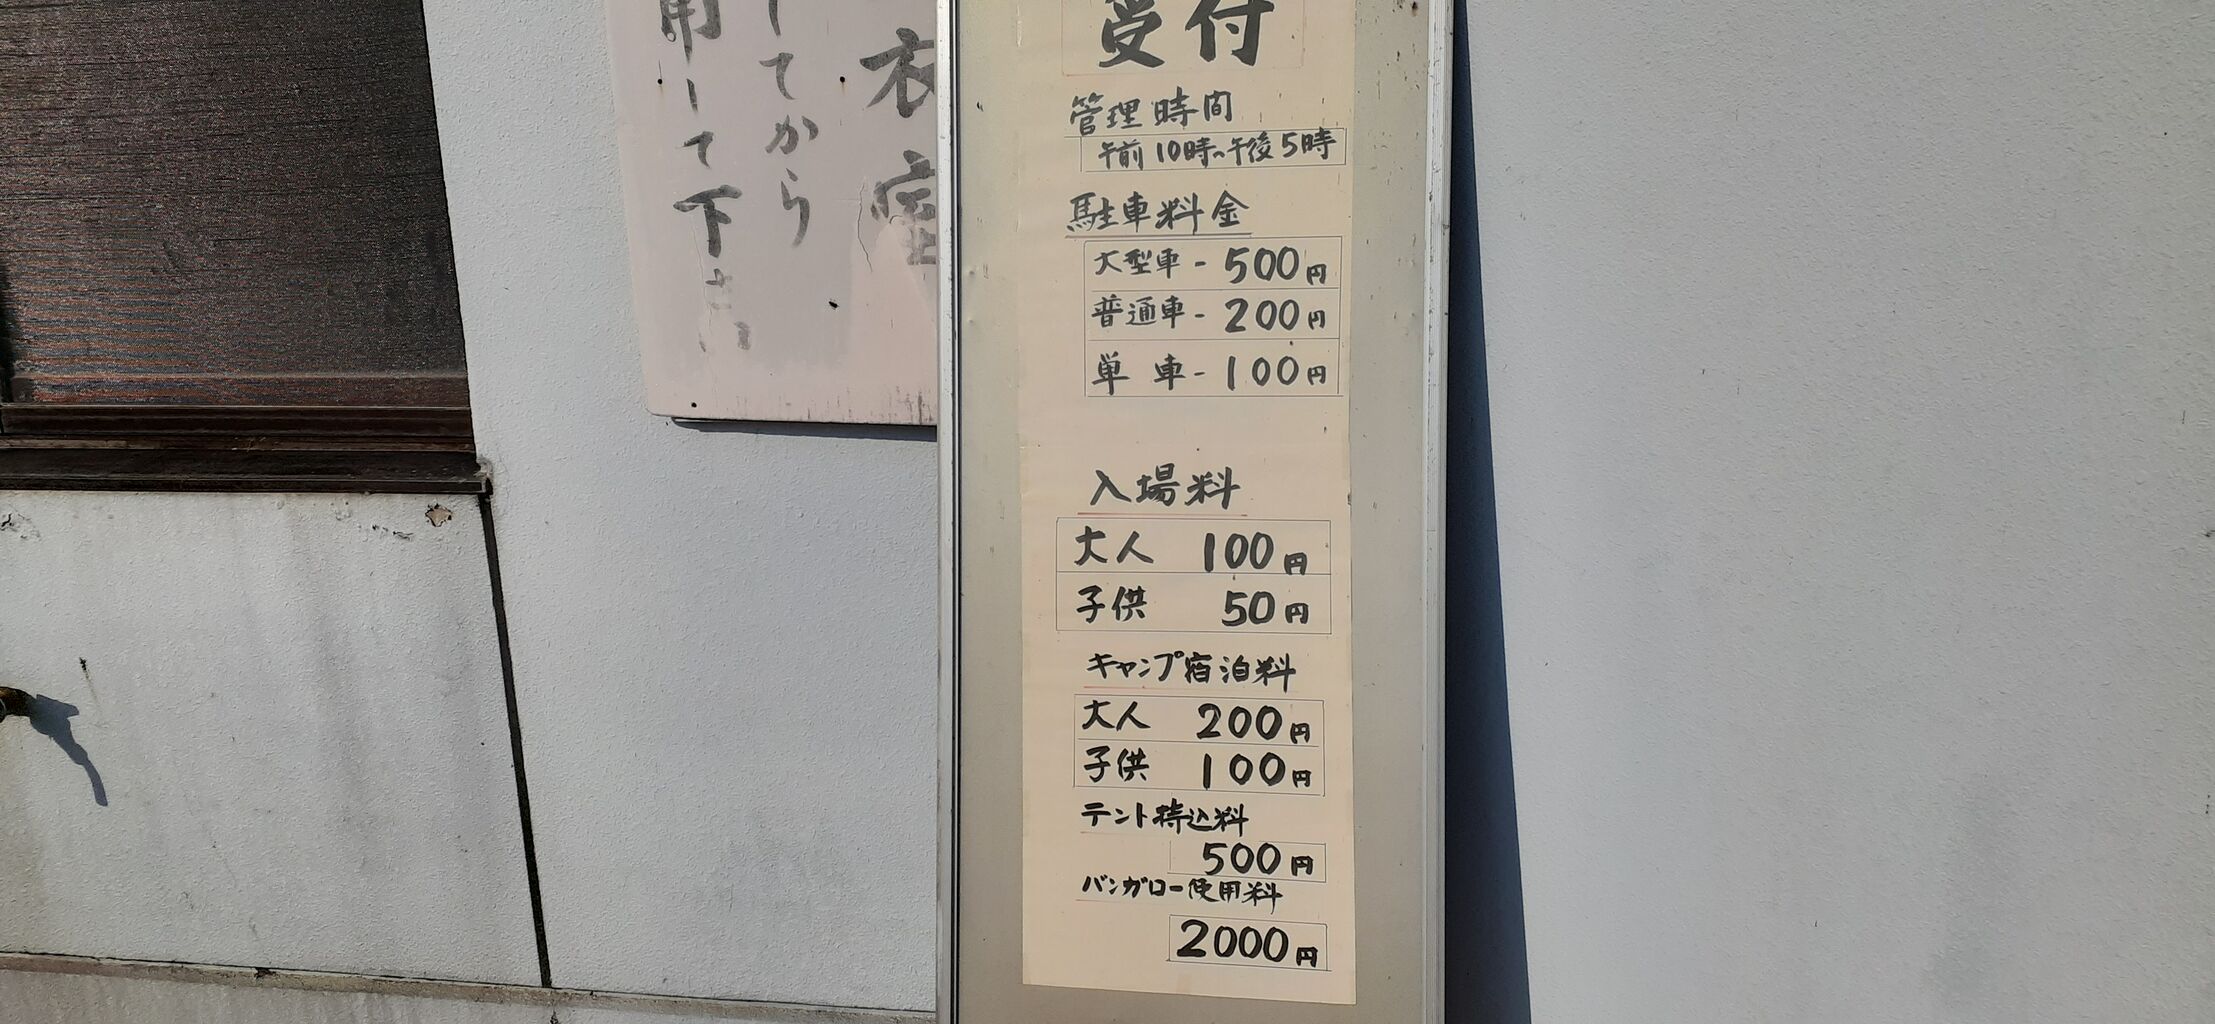 受付
管理時間
午前10時~午後5時
駐車料金
大型車-500円
普通車-200円
単車-100円
入場料
大人 100円
子供 50円
キャンプ宿泊料
大人 200円
子供 100円
テント持込料
500円
バンガロー使用料
2000円
衣室
してから
用して下さい